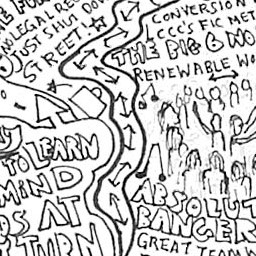 NO LEGAL RE
JUST SHUT DO
STREET!
CONVERSION
CCC'S FIC MET
THE BIG & NO
RENEWABLE WO
TO LEARN
MIND
DS AT
TURN
ABSOLUT
BANGER
GREAT TEAMW